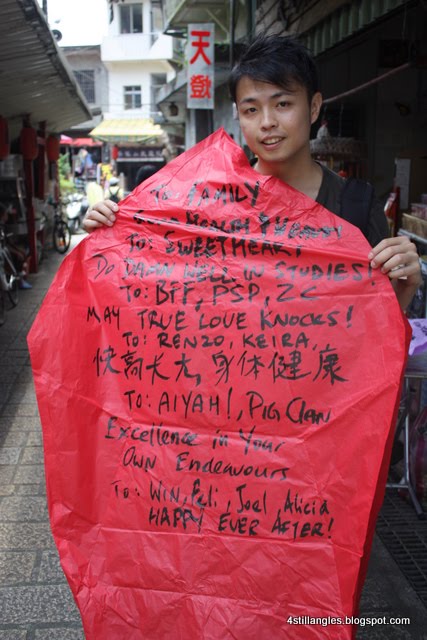 天燈
To: FAMILY
HEALTHY & HAPPY!
TO: SWEETHEART
DO DAMN WELL IN STUDIES!
TO: BFF, PSP, ZC
MAY TRUE LOVE KNOCKS!
TO: RENZO, KEIRA,
快高大大,身体健康
TO: AIYAH!, PIG CLAN
Excellence in Your
Own Endeavours
To: Win, Peli, Joel, Alicia
HAPPY EVER AFTER!
4stillangles.blogspot.com